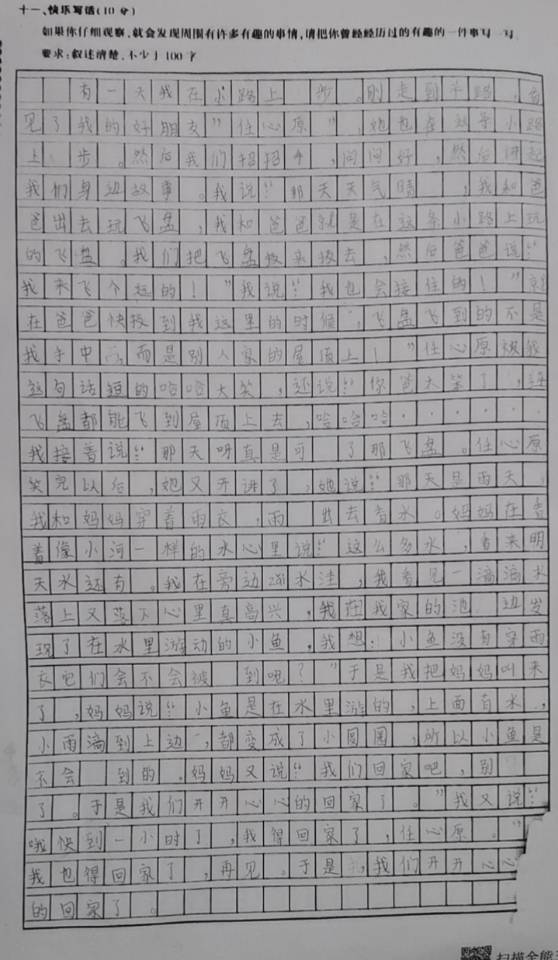 十一、快乐写话(10分)
如果你仔细观察,就会发现周围有许多有趣的事情,请把你曾经经历过的有趣的一件事写一写
要求:叙述清楚,不少于100字
有一天我在小路上 步。刚走到半路,看
见了我的好朋友"任心原",她也在这条小路
上 步。然后我们招招手,问问好,然后讲起
我们身边故事。我说:"那天天气晴 ,我和爸
爸出去玩飞盘,我和爸爸就是在这条小路上玩
的飞盘。我们把飞盘 来 去,然后爸爸说:"
我来飞个超的!"我说:"我也会接住的!"就
在爸爸快 到我这里的时候,飞盘飞到的不是
我手中 ,而是别人家的屋顶上!"任心原被我
这句话 的哈哈大笑,还说:"你 太笨了,连
飞盘都能飞到屋顶上去,哈哈哈······
我接着说:"那天呀真是可 了那飞盘。任心原
笑完以后,她又开讲了,她说:"那天是雨天,
我和妈妈穿着雨衣,雨 出去看水。妈妈在看
着像小河一样的水心里说:"这么多水,看来明
天水还有。我在旁边 水洼,我看见一滴滴水
落上又落下心里真高兴,我在我家的池 边发
现了在水里游动的小鱼,我想:小鱼没有穿雨
衣它们会不会被 到呢?"于是我把妈妈叫来
了,妈妈说:"小鱼是在水里游的,上面有水,
小雨滴到上边,都变成了小圆圈,所以小鱼是
不会 到的。妈妈又说:"我们回家吧,别
了。于是我们开开心心的回家了。"我又说:"
哦快到一小时了,我得回家了,任心原。"
我也得回家了,再见。于是 ,我们开开心心
的回家了。
扫描全能